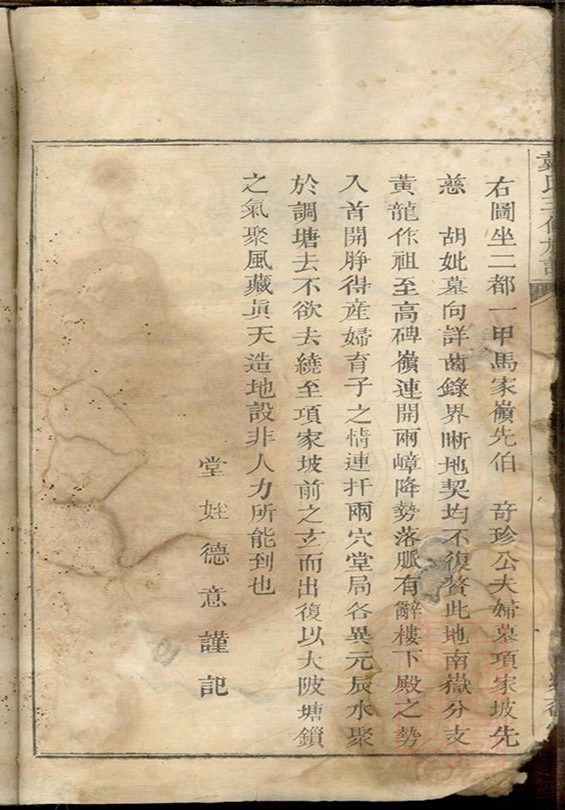 右圖坐二都一甲馬家嶺先伯 奇珍公夫婦墓項家坡先
慈 胡妣墓向詳茵錄界晰地契均不復贅此地南嶽分支
黃龍作祖至高碑嶺連開兩嶂降勢落脈有辭樓下殿之勢
入首開脖得産婦育子之情連扦兩穴堂局各異元辰水聚
於調塘去不欲去繞至項家坡前之玄而出復以大陂塘鎖
之氣聚風藏眞天造地設非人力所能到也
堂姪德意謹記
氏三修族